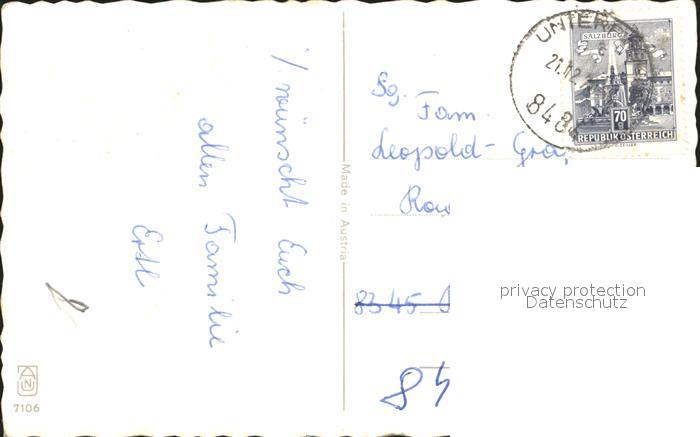 ./ wünscht Euch
allen Familie
Ertl
Made in Austria
7106
SALZBURG
70
REPUBLIK ÖSTERREICH
21.12
Sg. Fam.
Leopold-
8345
privacy protection
Datenschutz